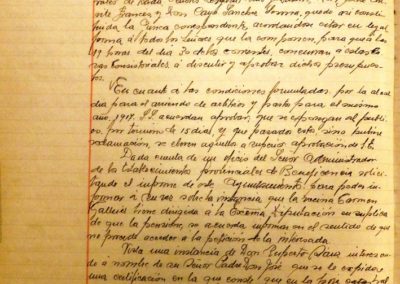 te Frances y Don Cayo Sancho Senna, quedo asi consti
tuida la Junta correspondiente, acordandose citar en legal
forma á todos los que la componen, para que á las
19 horas del dia 30 de los corrientes, concurran á estas
Casas Consistoriales á discutir y aprobar dichos presupues
tos.
En cuanto á las condiciones formuladas por la alcal
dia para el arriendo de arbitrios y pasto para el mismo
año, 1917. Se acuerdan aprobar, que se expongan al publi
co, por termino de 15 dias, y que pasados estos sin
reclamación, se eleven aquellos á superior aprobación
Dada cuenta de un oficio del Señor Administrador
de los Establecimientos provinciales de Beneficencia solici
tando el informe de este Ayuntamiento, para poder in
formar á su vez sobre la instancia que la vecina Carmen
tiene dirigida á la Excma. Diputacion en suplica
de que la pensione, se acuerda informar en el sentido de que
no procede acceder á la peticion de la interesada.
Vista una instancia de Don Ruperto interesan
do á nombre de un Señor Padre Don José que se le expida
una certificación en la que conste que en la